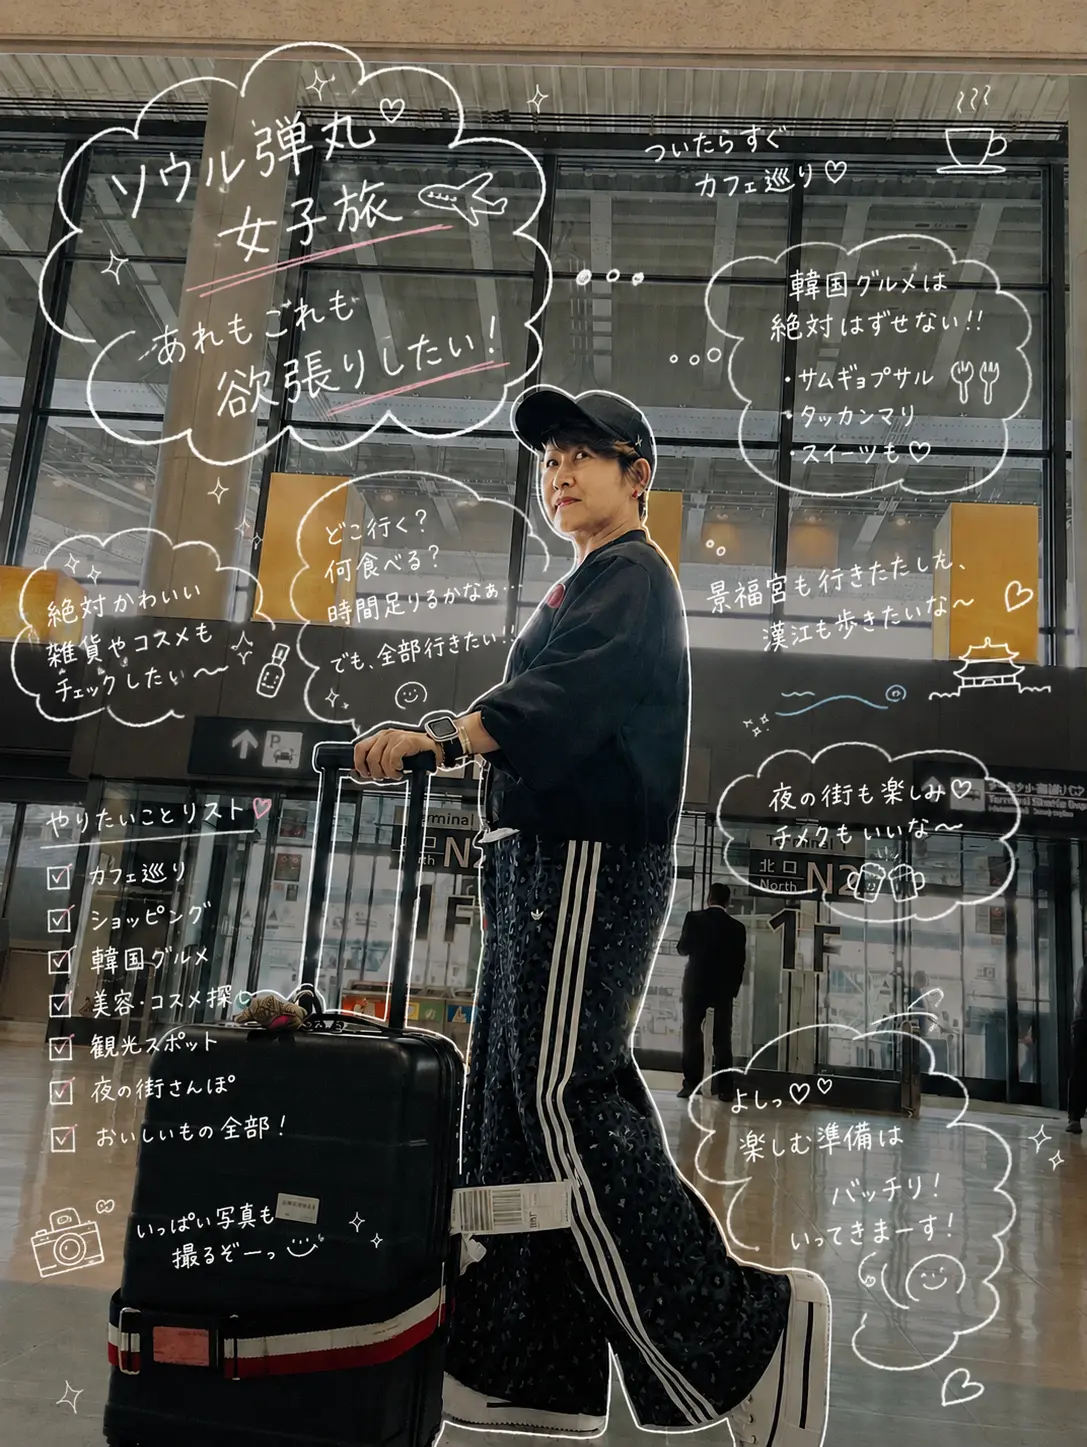 ソウル弾丸
女子旅
あれもこれも
欲張りしたい!
ついたらすぐ
カフェ巡り
韓国グルメは
絶対はずせない!!
・サムギョプサル
・タッカンマリ
・スイーツも
どこ行く?
何食べる?
時間足りるかなぁ…
でも、全部行きたい!!
絶対かわいい
雑貨やコスメも
チェックしたぃ〜
景福宮も行きたたした、
漢江も歩きたいな〜
夜の街も楽しみ
チメクもいいな〜
やりたいことリスト
カフェ巡り
ショッピング
韓国グルメ
美容・コスメ探
観光スポット
夜の街さんぽ
おいしいもの全部!
いっぱい写真も
撮るぞーっ
よしっ
楽しむ準備は
バッチリ!
いってきまーす!
P
Terminal
North N2
1F
Terminal 1
北口
North N2
1F